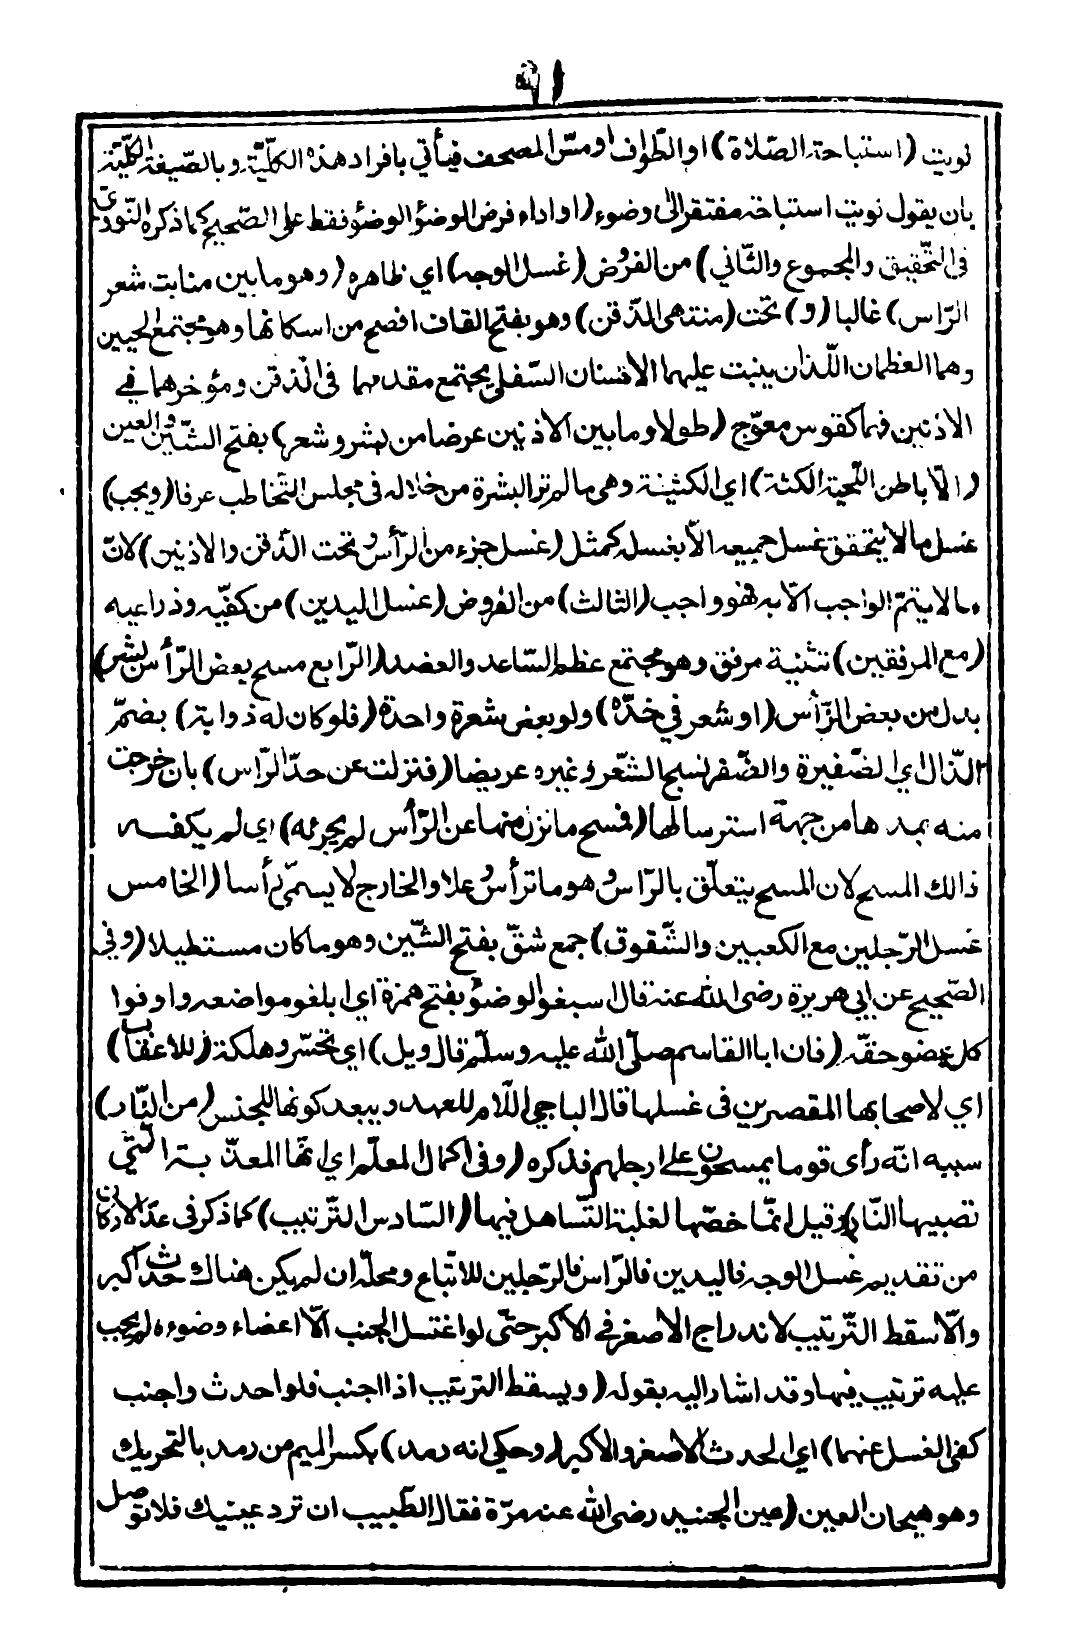 ٩١
نويت (استباحة الصّلاة) او الطّواف او مسّ المصحف فيأتي بافراد هذه الكلّيّة وبالصّيغة الكلّيّة
بان يقول نويت استباحة مفتقر الى وضوء (او اداء فرض الوضوء او الوضوء فقط على الصّحيح كما ذكره النّووىّ
فى التّحقيق والمجموع والثّاني) من الفروض (غسل الوجه) اي ظاهره (وهو ما بين منابت شعر
الرّاس) غالبا (و) تحت (منتهى الذّقن) وهو بفتح القاف افصح من اسكانها وهو مجتمع اللحيين
وهما العظمان اللّذان ينبت عليهما الاسنان السّفلى يجتمع مقدمهما فى الذقن ومؤخرهما في
الاذنين فهما كقوس معوّج (طولا وما بين الاذنين عرضا من بشر وشعر) بفتح الشّين والعين
(الّا باطن اللّحية الكثة) اي الكثيفة وهى ما لم تر البشرة من خلاله فى مجلس التّخاطب عرفا (ويجب)
غسل ما لا يتحقق غسل جميعه الّا بغسله كمثل (غسل جزء من الرّأس وتحت الذّقن والاذنين) لانّ
ما لا يتمّ الواجب الّا به فهو واجب (الثالث) من الفروض (غسل اليدين) من كفّيه وذراعيه
(مع المرفقين) تثنية مرفق وهو مجتمع عظم السّاعد والعضد (الرّابع مسح بعض الرّأس بشر)
بدل من بعض الرّأس (او شعر في حدّه) ولو بعض شعرة واحدة (فلو كان له ذوابة) بضمّ
الذّال اي الضفيرة والضّفر نسج الشّعر وغيره عريضا (فنزلت عن حدّ الرّاس) بان خرجت
منه بمدها من جهة استرسالها (فمسح ما نزل منها عن الرّأس لم يجزئه) اي لم يكفه
ذالك المسح لان المسح يتعلّق بالرّاس وهو ما ترأس وعلا والخارج لا يسمّى رأسا (الخامس
غسل الرّجلين مع الكعبين والشّقوق) جمع شقّ بفتح الشّين وهو ما كان مستطيلا (وفي
الصّحيح عن ابي هريرة رضى الله عنه قال اسبغوا الوضوء) بفتح همزة اي ابلغو مواضعه واوفوا
كل عضو حقّه (فان ابا القاسم صلّى الله عليه وسلّم قال ويل) اي تحسّر وهلكة (للاعقاب)
اي لاصحابها المقصرين فى غسلها قال الباجي اللّام للعهد ويبعد كونها للجنس (من النّار)
سببه انّه رأى قوما يمسحون على ارجلهم فذكره (وفى اكمال المعلّم اي انّها المعذّبة الّتي
تصيبها النّار) وقيل انمّا خصّها لغلبة التّساهل فيها (السّادس التّرتيب) كما ذكر فى عدّ الاركان
من تقديم غسل الوجه فاليدين فالرّاس فالرّجلين للاتّباع ومحلّه ان لم يكن هناك حدث اكبر
والّا سقط التّرتيب لاندراج الاصغر في الاكبر حتّى لو اغتسل الجنب الّا اعضاء وضوءه لم يجب
عليه ترتيب فيها وقد اشار اليه بقوله (ويسقط الترتيب اذا اجنب فلو احدث واجنب
كفى الغسل عنهما) اي الحدث الاصغر والاكبر (وحكي انه رمد) بكسر الميم من رمد بالتحريك
وهو هيجان العين (عين الجنيد رضى الله عنه مرّة فقال الطّبيب ان ترد عينيك فلا توصل